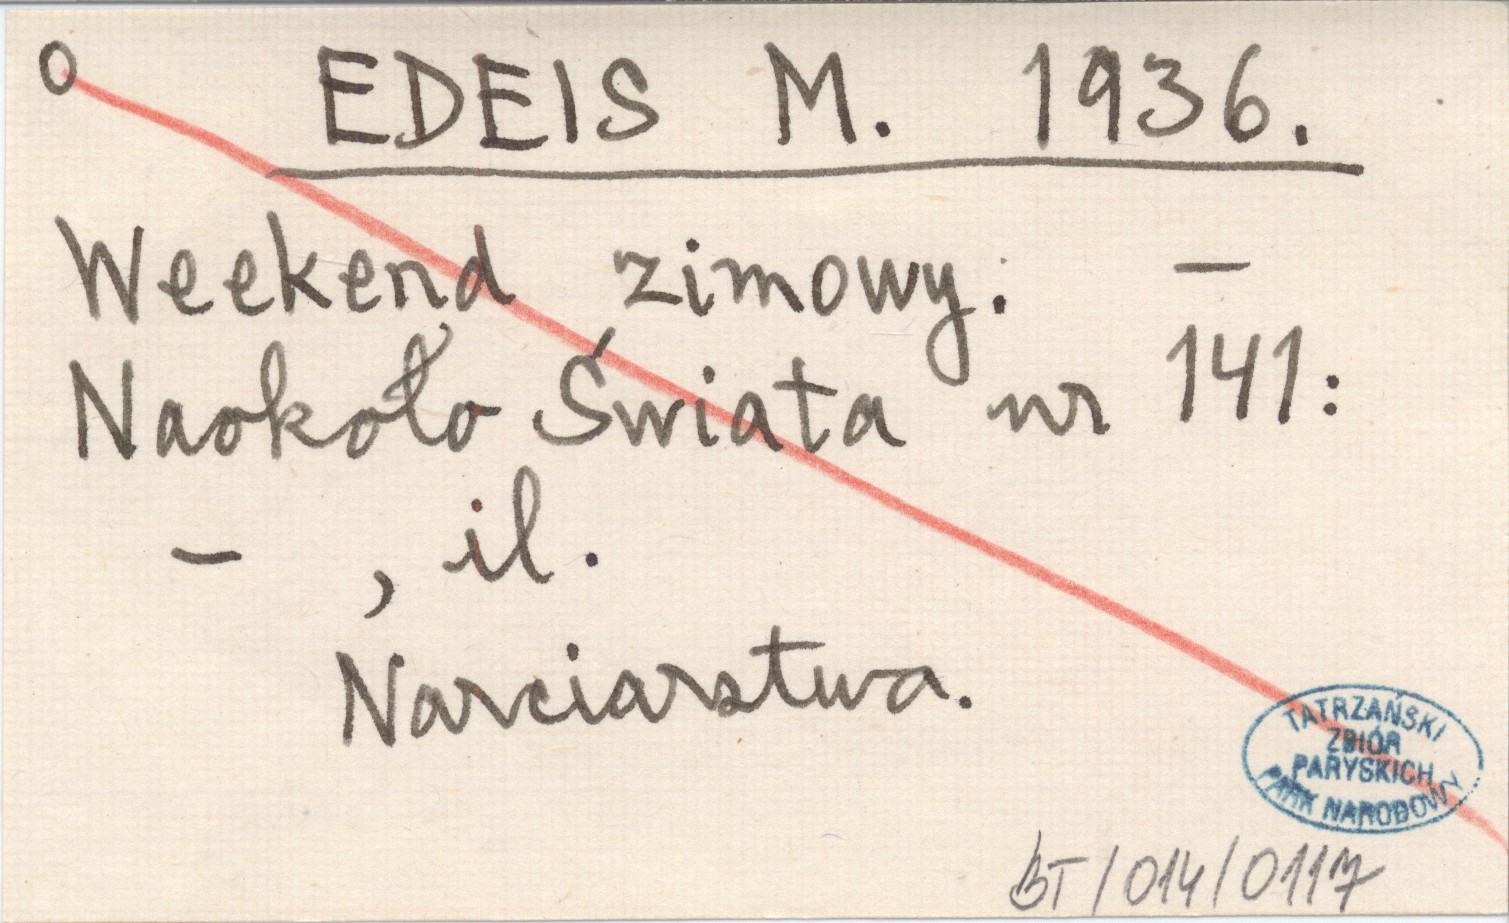 O EDEIS M. 1936.
Weekend zimowy. —
Naokoło Świata nr 141:
— , il.
Narciarstwa.
TATRZAŃSKI
ZBIÓR
PARYSKICH
PARK NARODOWY
BT/014/0117